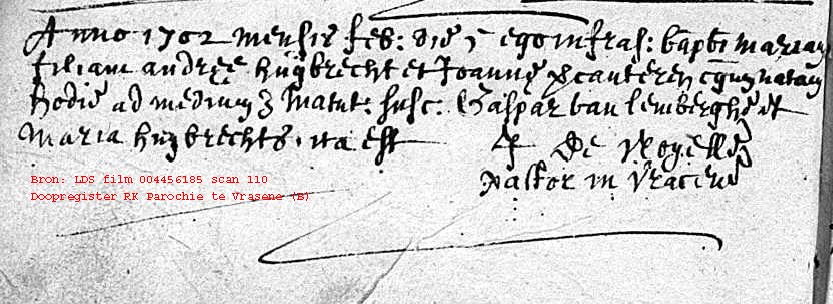 Anno 1702 mensis feb: die 5 ego infras: bapt: mariam
filiam andreæ huybrecht et Joannæ cauteren natam
hodie ad medium 3 matut: susc: Gaspar van lemberghe et
Maria huybrechts. ita est
De
pastor in vracene
Bron: LDS film 004456185 scan 110
Doopregister RK Parochie te Vrasene (B)